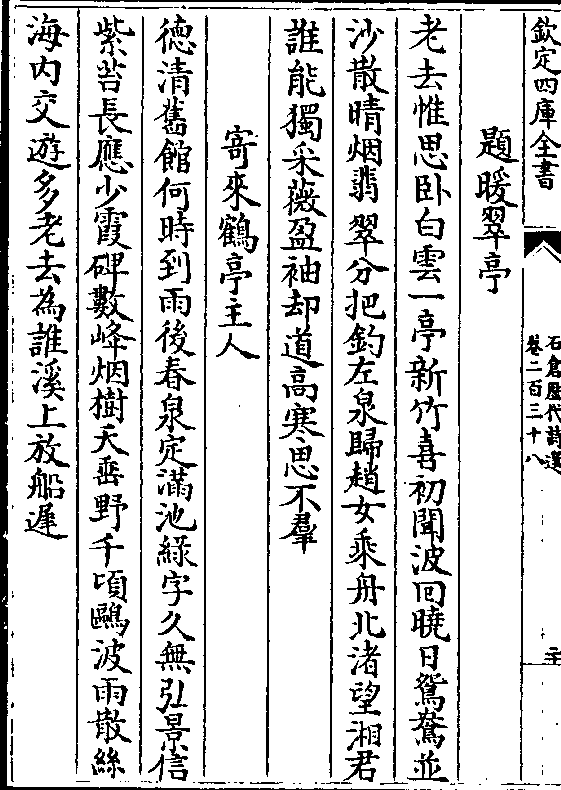 欽定四庫全書
石倉歷代詩選
卷二百三十八
二十
題暖翠亭
老去惟思卧白雲一亭新竹喜初聞波回曉日鴛鴦並
沙散晴烟翡翠分把釣左泉歸趙女乘舟北渚望湘君
誰能獨采薇盈袖却道高寒思不羣
寄來鶴亭主人
德清舊館何時到雨後春泉定滿池緑字久無弘景信
紫苔長應少霞碑數峰烟樹天垂野千頃鷗波雨散絲
海内交遊多老去為誰溪上放船遲